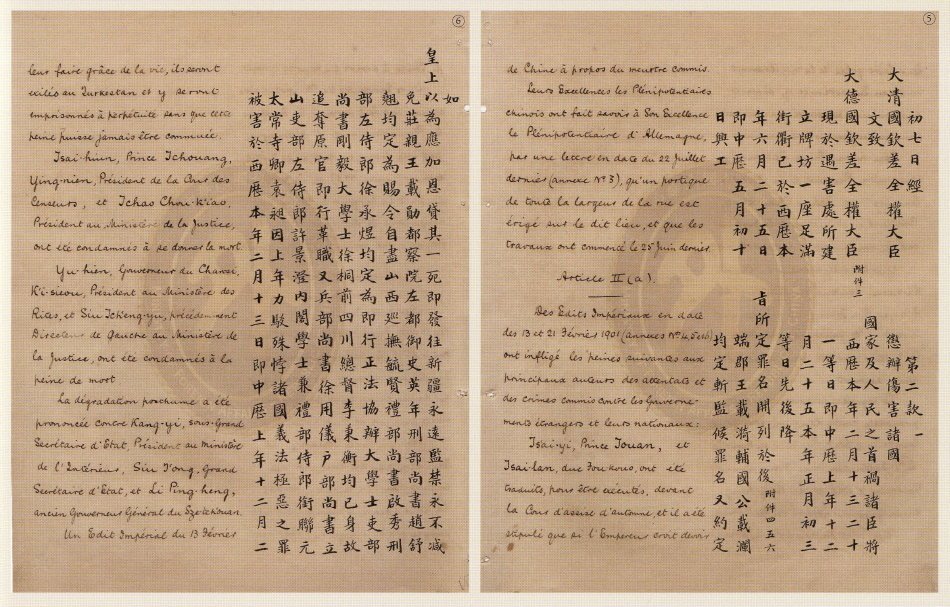 ⑤
de Chine à propos du meurtre commis.
Leurs Excellences les Plénipotentiaires
chinois ont fait savoir à Son Excellence
le Plénipotentiaire d'Allemagne,
par une lettre en date du 22 juillet
dernier (annexe No 3), qu'un portique
de toute la largeur de la rue est
érigé sur le dit lieu, et que les
travaux ont commencé le 25 juin dernier.
Article II (a).
Des Édits Impériaux en date
des 13 et 21 Février 1901 (annexes Nos 4, 5 et 6)
ont infligé les peines suivantes aux
principaux auteurs des attentats et
des crimes commis contre les Gouverne-
ments étrangers et leurs nationaux:
Tsai-yi, Prince Touan, et
Tsai-lan, duc Fou-kouo, ont été
traduits, pour être exécutés, devant
la Cour d'assise d'automne, et il a été
stipulé que si l'Empereur croit devoir
初七日經
大清國欽差全權大臣
文致
大德國欽差全權大臣附件三
現於遇害處所建
立牌坊一座足滿
街衢已於西歷本
年六月二十五日
即中歷五月初十
日興工
第二款一
懲辦傷害諸國
國家及人民之首禍諸臣將
西歷本年二月十三二十
一等日即中歷上年十二
月二十五本年正月初三
等日先後降
旨所定罪名開列於後附件四五六
端郡王載漪輔國公載瀾
均定斬監候罪名又約定
⑥
leur faire grâce de la vie, ils seront
exilés au Turkestan et y seront
emprisonnés à perpétuité sans que cette
peine puisse jamais être commuée.
Tsai-hiun, Prince Tchouang,
Ying-nien, Président de la Cour des
Censeurs, et Tchao Chou-k'iao,
Président au Ministère de la Justice,
ont été condamnés à se donner la mort.
Yu-hien, Gouverneur du Chansi,
K'i-sieou, Président au Ministère des
Rites, et Siu Tch'eng-yu, précédemment
Directeur de Gauche au Ministère de
la Justice, ont été condamnés à la
peine de mort
La dégradation posthume a été
prononcée contre Kang-yi, sous-Grand
Secrétaire d'Etat, Président au Ministère
de l'Intérieur, Siu T'ong, Grand
Secrétaire d'Etat, et Li Ping-heng,
ancien Gouverneur Général du Szetchouan.
Un Edit Impérial du 13 Février
如
皇上以為應加恩貸其一死即發往新疆永遠監禁永不減
免莊親王載勛都察院左都御史英年刑部尚書趙舒
翹均定為賜令自盡山西巡撫毓賢禮部尚書啟秀刑
部左侍郎徐承煜均定為即行正法協辦大學士吏部
尚書剛毅大學士徐桐前四川總督李秉衡均已身故
追奪原官即行革職又兵部尚書徐用儀戶部尚書立
山吏部左侍郎許景澄內閣學士兼禮部侍郎銜聯元
太常寺卿袁昶因上年力駁殊悖諸國義法極惡之罪
被害於西歷本年二月十三日即中歷上年十二月二